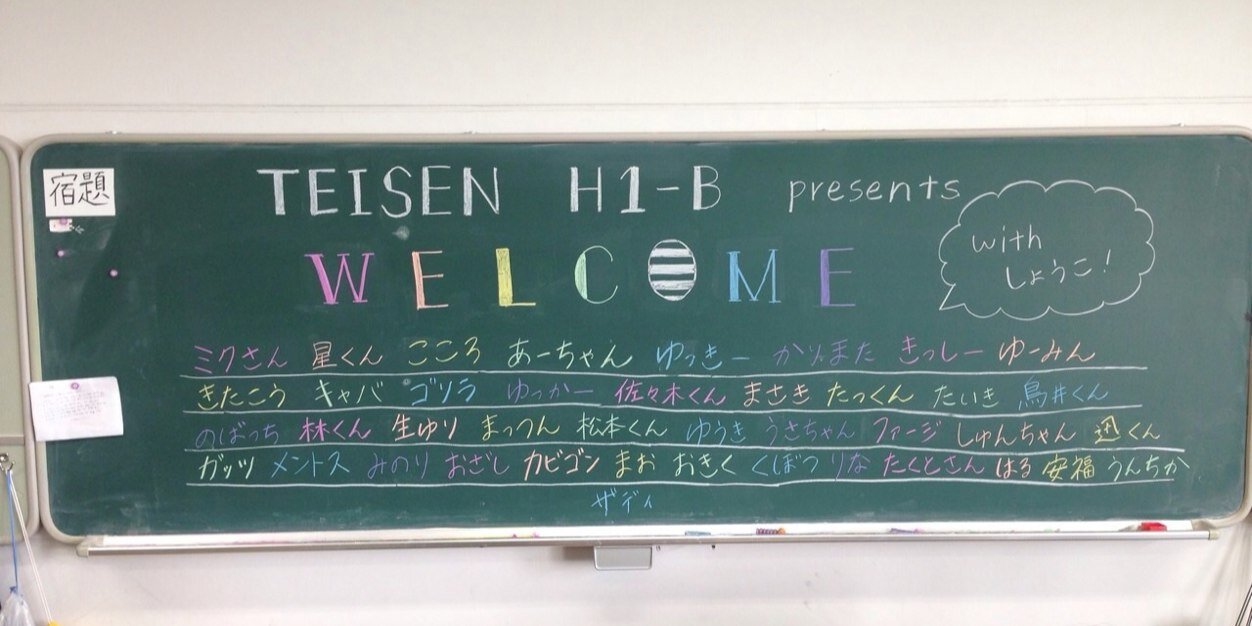 宿題
TEISEN H1-B presents
WELCOME
with
しょうこ!
ミクさん 星くん こころ あーちゃん ゆっきー かりまた きっしー ゆーみん
きたこう キャバ ゴリラ ゆっかー 佐々木くん まさき たっくん たいき 鳥井くん
のばっち 林くん 生ゆり まっつん 松本くん ゆうき うさちゃん ファージ しゅんちゃん 迅くん
ガッツ メントス みのり おざし カビゴン まお おきく くぼつ りな たくとさん はる 安福 うんちか
ザディ